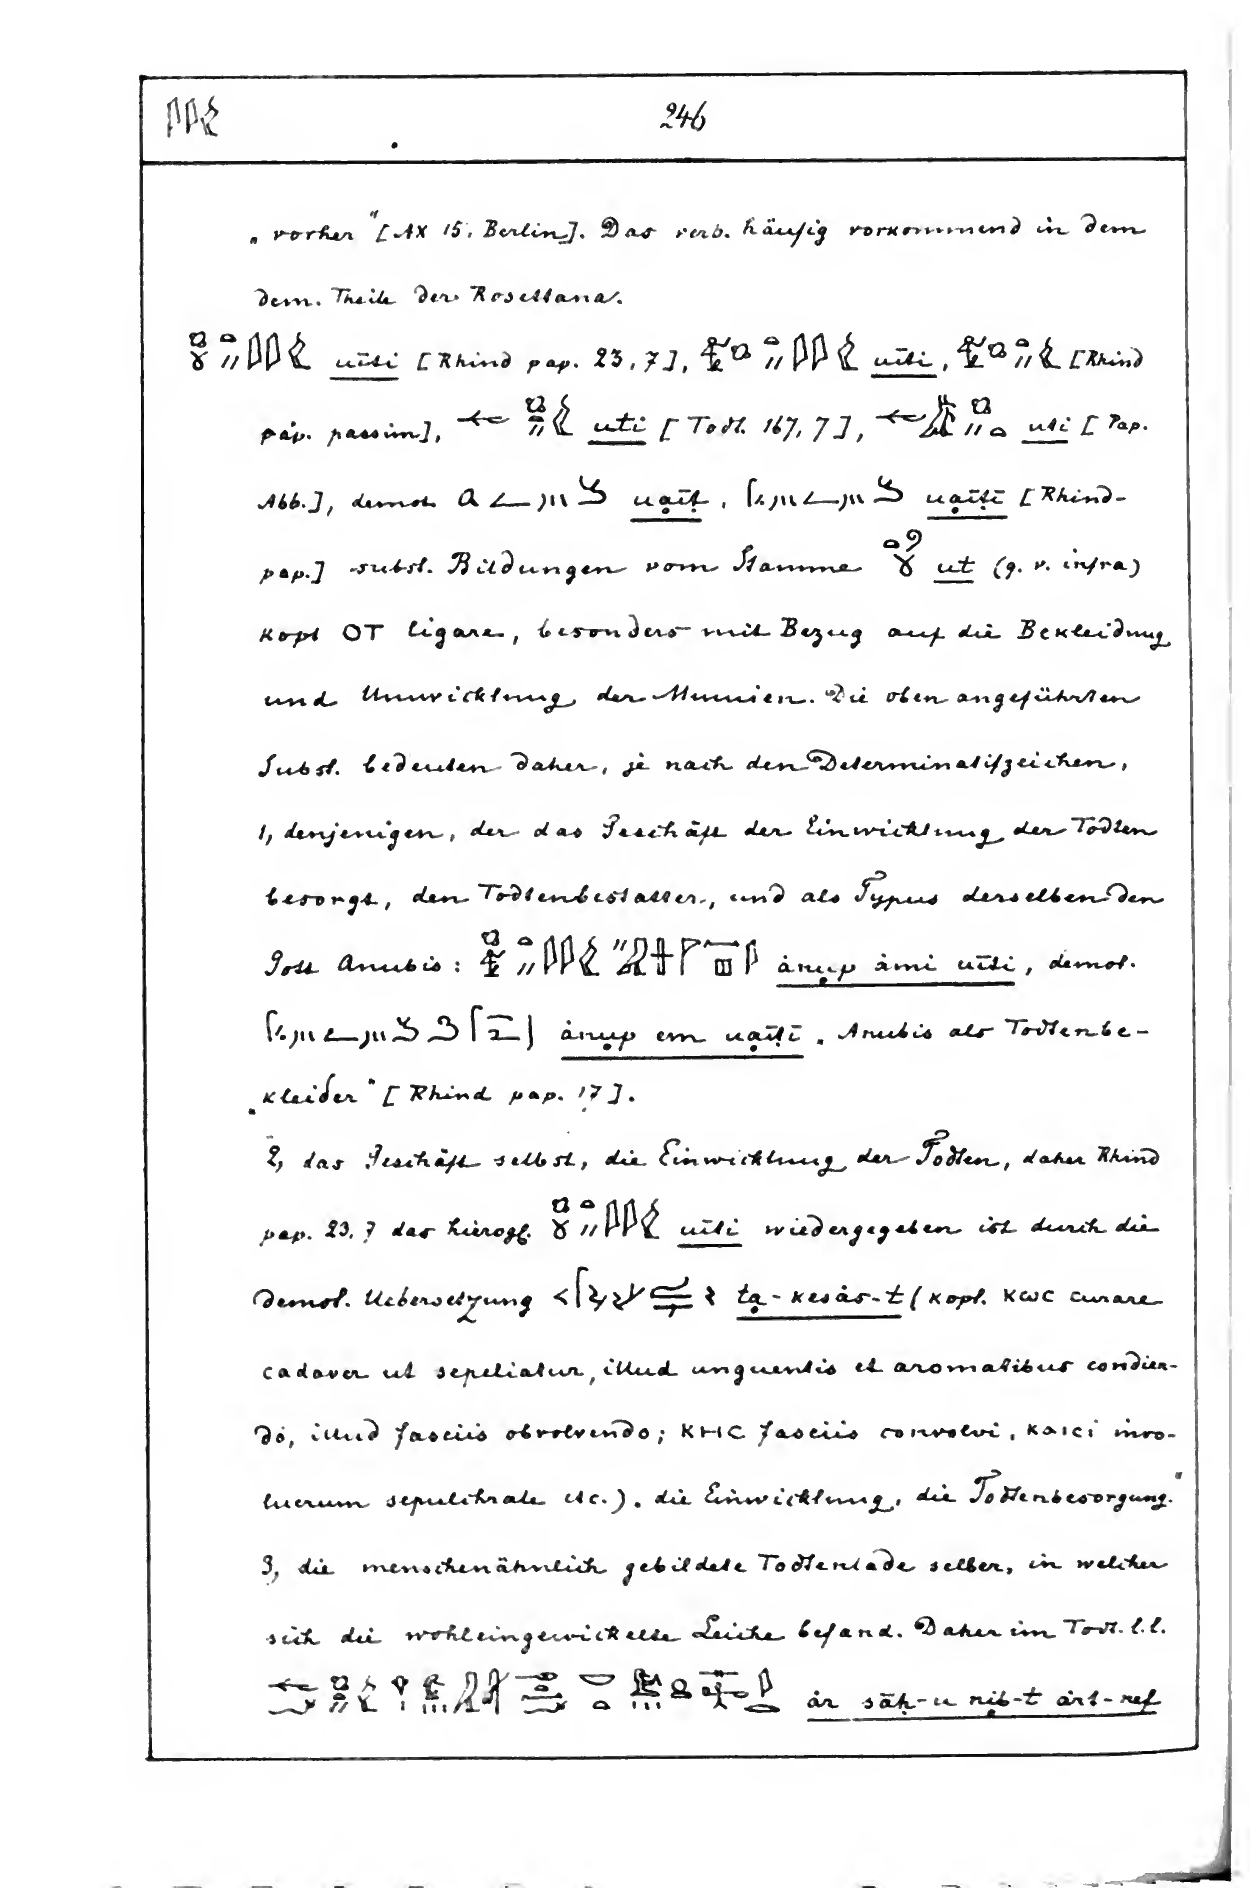 246
„vorher" [AX 15. Berlin]. Das verb. häufig vorkommend in dem
dem. Theile der Rosettana.
uīti [Rhind pap. 23,7], uīti, [Rhind
pap. passim], uti [Todt. 167, 7], uti [Pap.
Abb.], demot. uạīṭ, uạīṭī [Rhind-
pap.] subst. Bildungen vom Stamme ut (q. v. infra)
kopt ΟΤ ligare, besonders mit Bezug auf die Bekleidung
und Umwicklung der Mumien. Die oben angeführten
Subst. bedeuten daher, je nach den Determinatifzeichen,
1, denjenigen, der das Geschäft der Einwicklung der Todten
besorgt, den Todtenbestatter, und als Typus derselben den
Gott Anubis: ȧnụp ȧmi uīti, demot.
ȧnụp em uạīṭī „Anubis als Todtenbe-
kleider" [Rhind pap. 17].
2, das Geschäft selbst, die Einwicklung der Todten, daher Rhind
pap. 23,7 das hierogl. uīti wiedergegeben ist durch die
demot. Uebersetzung tạ-kesȧs-t (kopt. ⲕⲱⲥ curare
cadaver ut sepeliatur, illud unguentis et aromatibus condien-
do, illud fasciis obvolvendo; ⲕⲏⲥ fasciis convolvi, ⲕⲁⲓⲥⲓ invo-
lucrum sepulchrale etc.) „die Einwicklung, die Todtenbesorgung."
3, die menschenähnlich gebildete Todtenlade selber, in welcher
sich die wohleingewickelte Leiche befand. Daher im Todt. l.l.
ȧr sāḥ-u nib-t ȧrt-nef